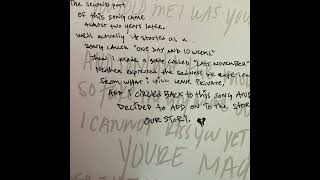 The second part
of this song came
almost two years later.
Well actually it started as a
song called "One Day and 10 Weeks"
Then I made a song called "Last November"
Neither expressed the sadness we experienced
from what I will leave private,
and I circled back to this song and
decided to add on to the story
our story.
MET WAS YOU
AND
SO
I CANNOT KISS YOU YET
YOU'RE MAG